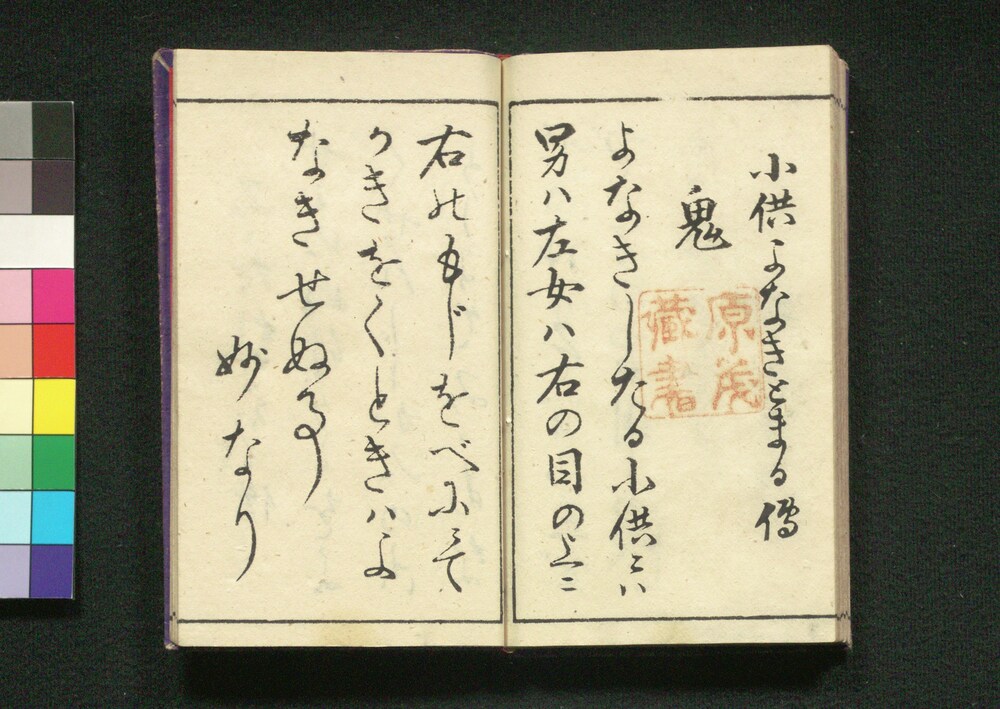 小供よなきとまる傳
鬼
よなきしたる小供ニハ
男ハ左女ハ右の目の上ニ
右のもじをべにニて
かきをくときハよ
なきせぬ事
妙なり
原茂
藏書